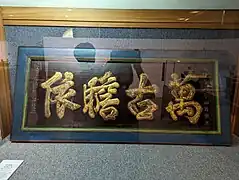 萬古瞻依